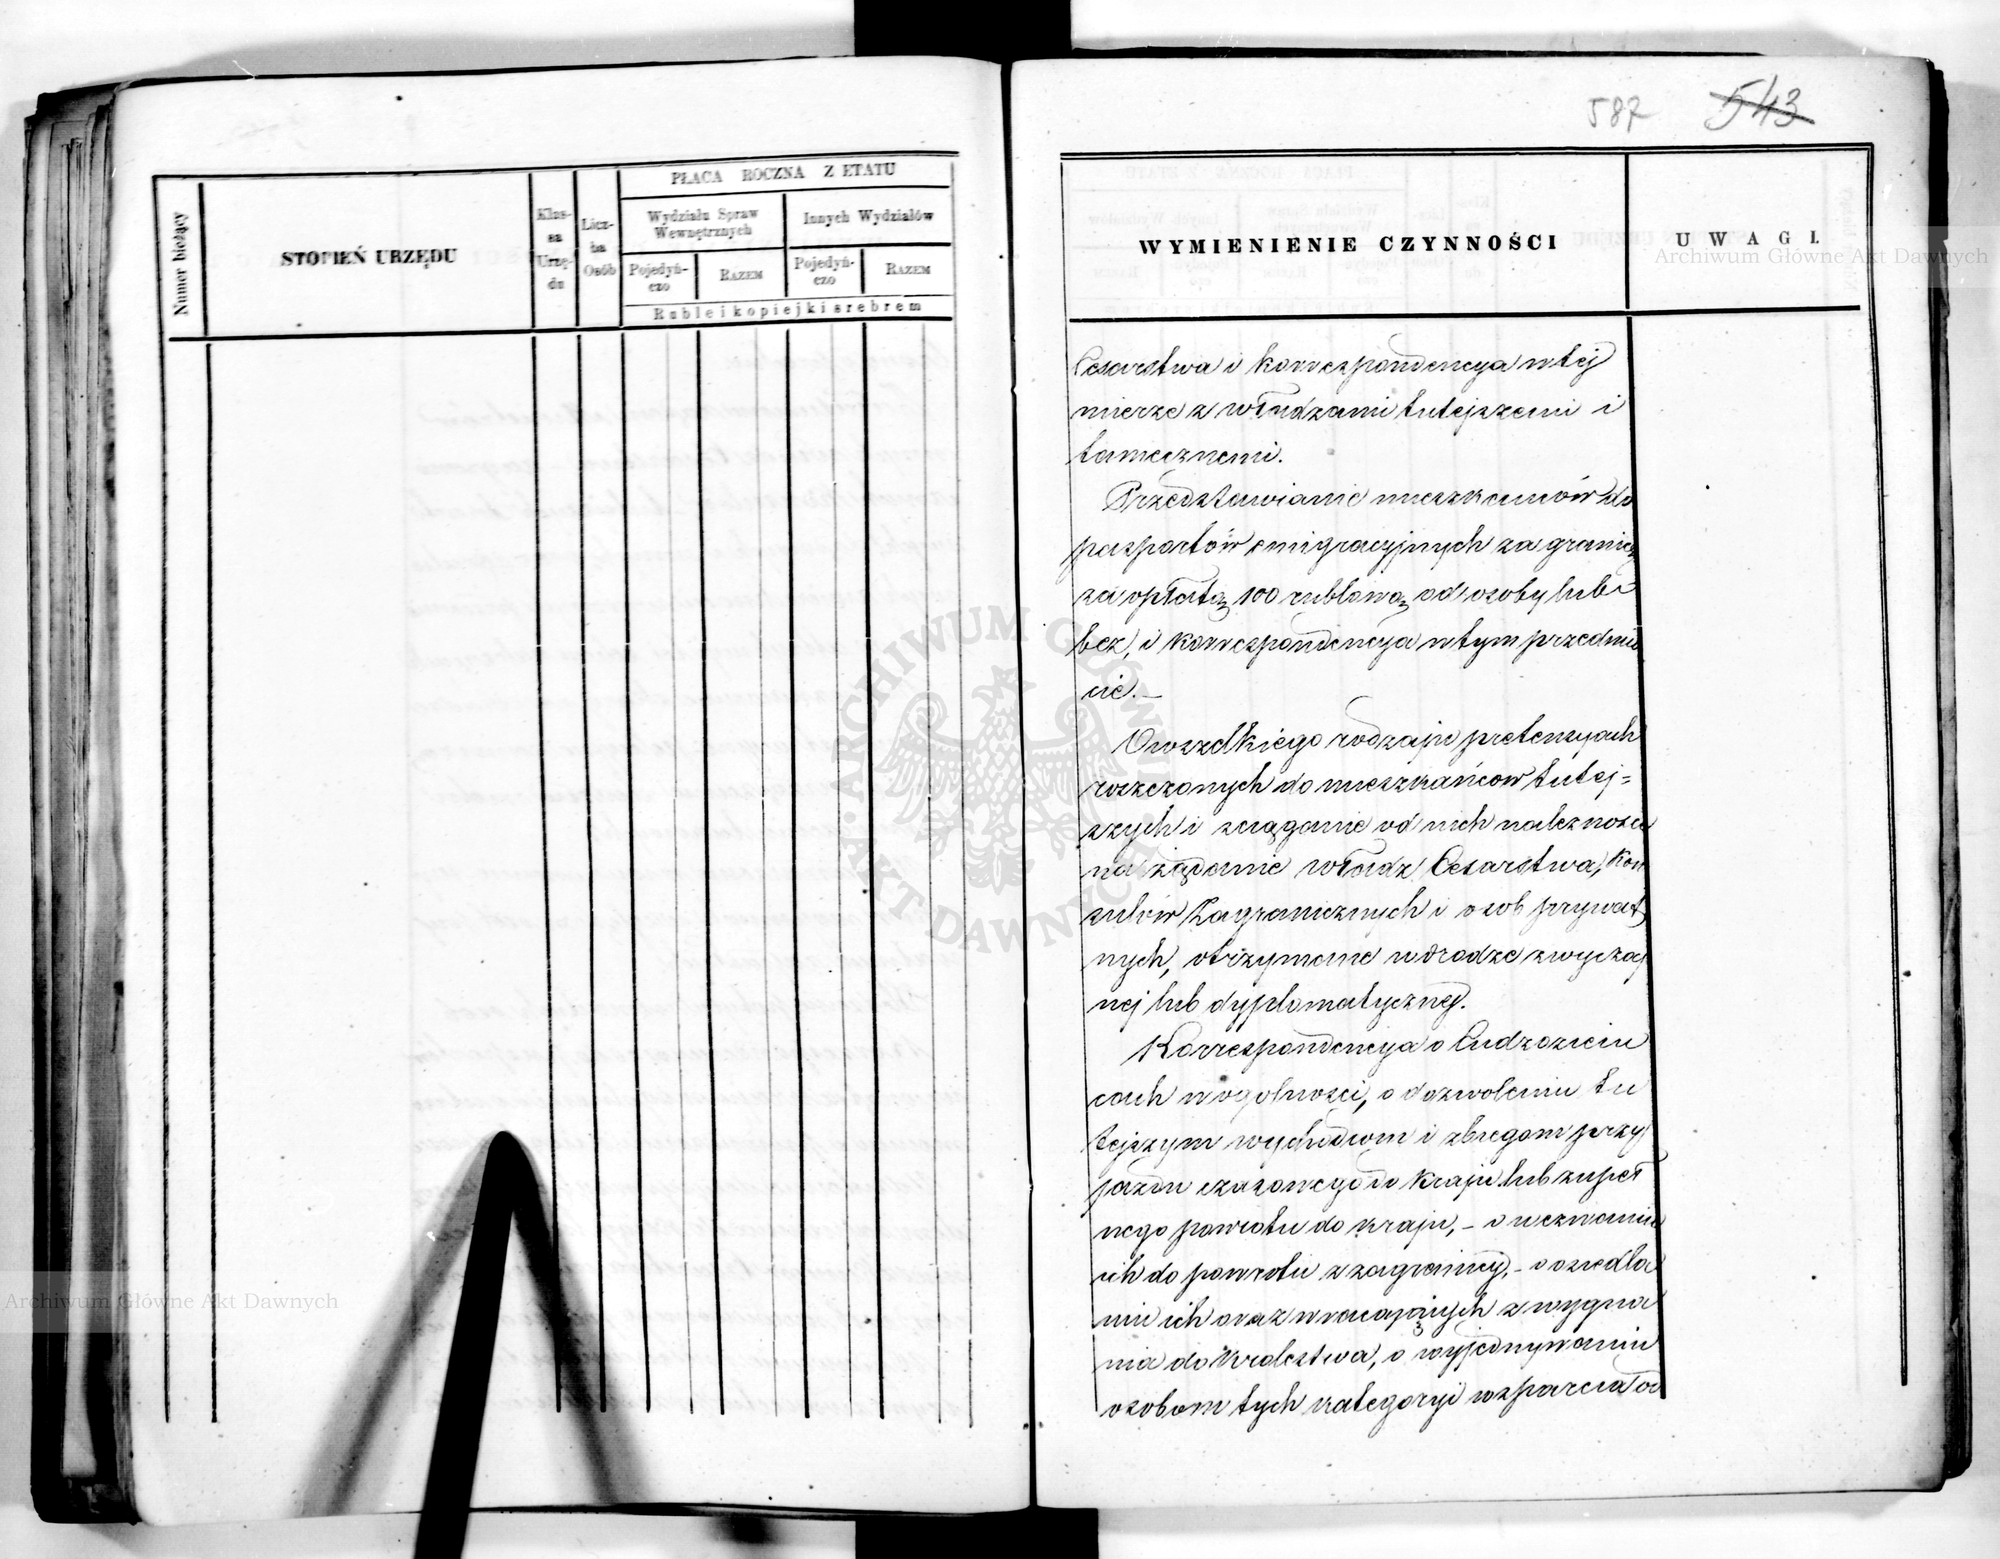 PŁACA ROCZNA Z ETATU
Numer bieżący
STOPIEŃ URZĘDU
Klas-
sa
Urzę-
du
Licz-
ba
Osób
Wydziału Spraw
Wewnętrznych
Innych Wydziałów
Pojedyń-
czo
RAZEM
Pojedyń-
czo
RAZEM
Ruble i kopiejki srebrem
587 543
WYMIENIENIE CZYNNOŚCI
UWAGI.
Cesarstwa i korrespondencya w tej
mierze z władzami tutejszemi i
tamecznemi.
Przedstawianie mieszkańców do
paszportów emigracyjnych za granicę
za opłatą 100 rublową od osoby lub
bez, i korrespondencya w tym przedmio
cie.—
O wszelkiego rodzaju pretensyach
roszczonych do mieszkańcow tutej=
szych i sciąganie od nich należnosci
na żądanie władz Cesarstwa, Kon
sulów Zagranicznych i osob prywat
nych, otrzymane w drodze zwyczaj
nej lub dyplomatycznej.
Korrespondencya o Cudzoziem
cach w ogolnosci, o dozwoleniu tu
tejszym wychodcom i zbiegom przy
jazdu czasowego do Kraju lub zupeł
nego powrotu do kraju,– o wezwaniu
ich do powrotu z zagranicy,– o osiedla
niu ich oraz wracających z wygna
nia do Krolestwa, o wyjednywaniu
osobom tych kategoryi wsparcia od
Archiwum Główne Akt Dawnych
Archiwum Główne Akt Dawnych
ARCHIWUM GŁÓWNE AKT DAWNYCH